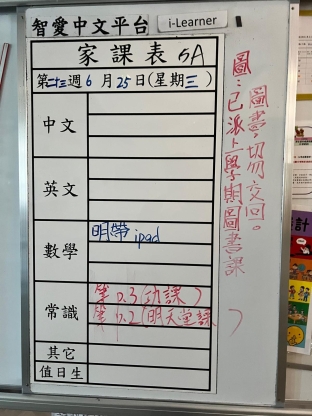 智愛中文平台 i-Learner
家課表 5A
第二十三週 6 月 25 日(星期三)
中文
英文
數學 明帶 ipad
常識 筆 p.3 (功課)
筆 p.2 (明天堂課)
其它
值日生
圖：已派上學期圖書課
圖書，切勿交回。